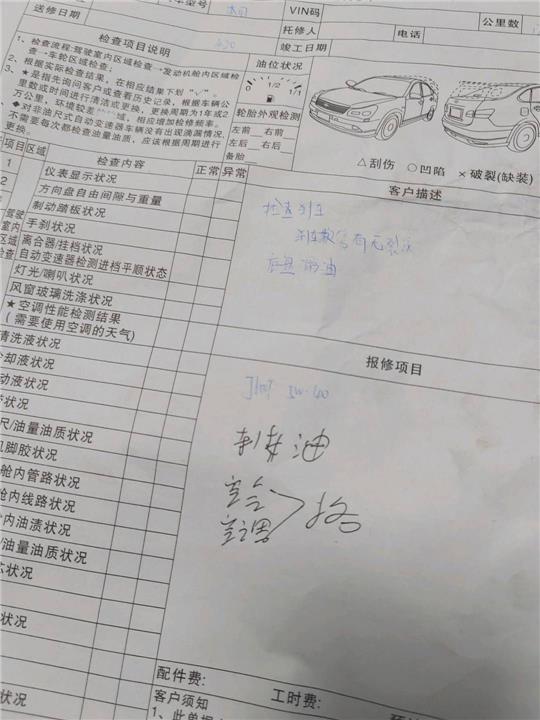 车型号
送修日期
VIN码
公里数
托修人
电话
竣工日期
检查项目说明
1、检查流程:驾驶室内区域检查→发动机舱内区域检
查→车轮区域检查;
2、根据实际检查结果,在相应结果下划 "√"。
3、★是指先询问客户或查看历史记录,根据车辆公
里数或时间进行清洁或更换,更换周期为1年或2
万公里,环境较差 域,相应增加检修频率。
非油尺式自动变速器车辆没有出现滴漏情况,
不需要每次都检查油量油质,应该根据周期进行
更换。
油位状况
0 1/2 1/1
轮胎外观检测
左前 右前
左后 右后
备胎
△刮伤 ○凹陷 ×破裂(缺装)
项目 区域 检查内容 正常 异常
1 仪表显示状况
2 方向盘自由间隙与重量
制动踏板状况
手刹状况
离合器/挂档状况
自动变速器检测进档平顺状态
灯光/喇叭状况
风窗玻璃洗涤状况
★空调性能检测结果
(需要使用空调的天气)
驾驶
室内
区域
检查
清洗液状况
却液状况
动液状况
状况
尺/油量油质状况
机脚胶状况
舱内管路状况
舱内线路状况
内油渍状况
/油量油质状况
芯状况
状况
状况
客户描述
检查刹车
底盘 油
报修项目
5W-40
刹车油
空气
空调
配件费:
工时费:
客户须知
1、此单据